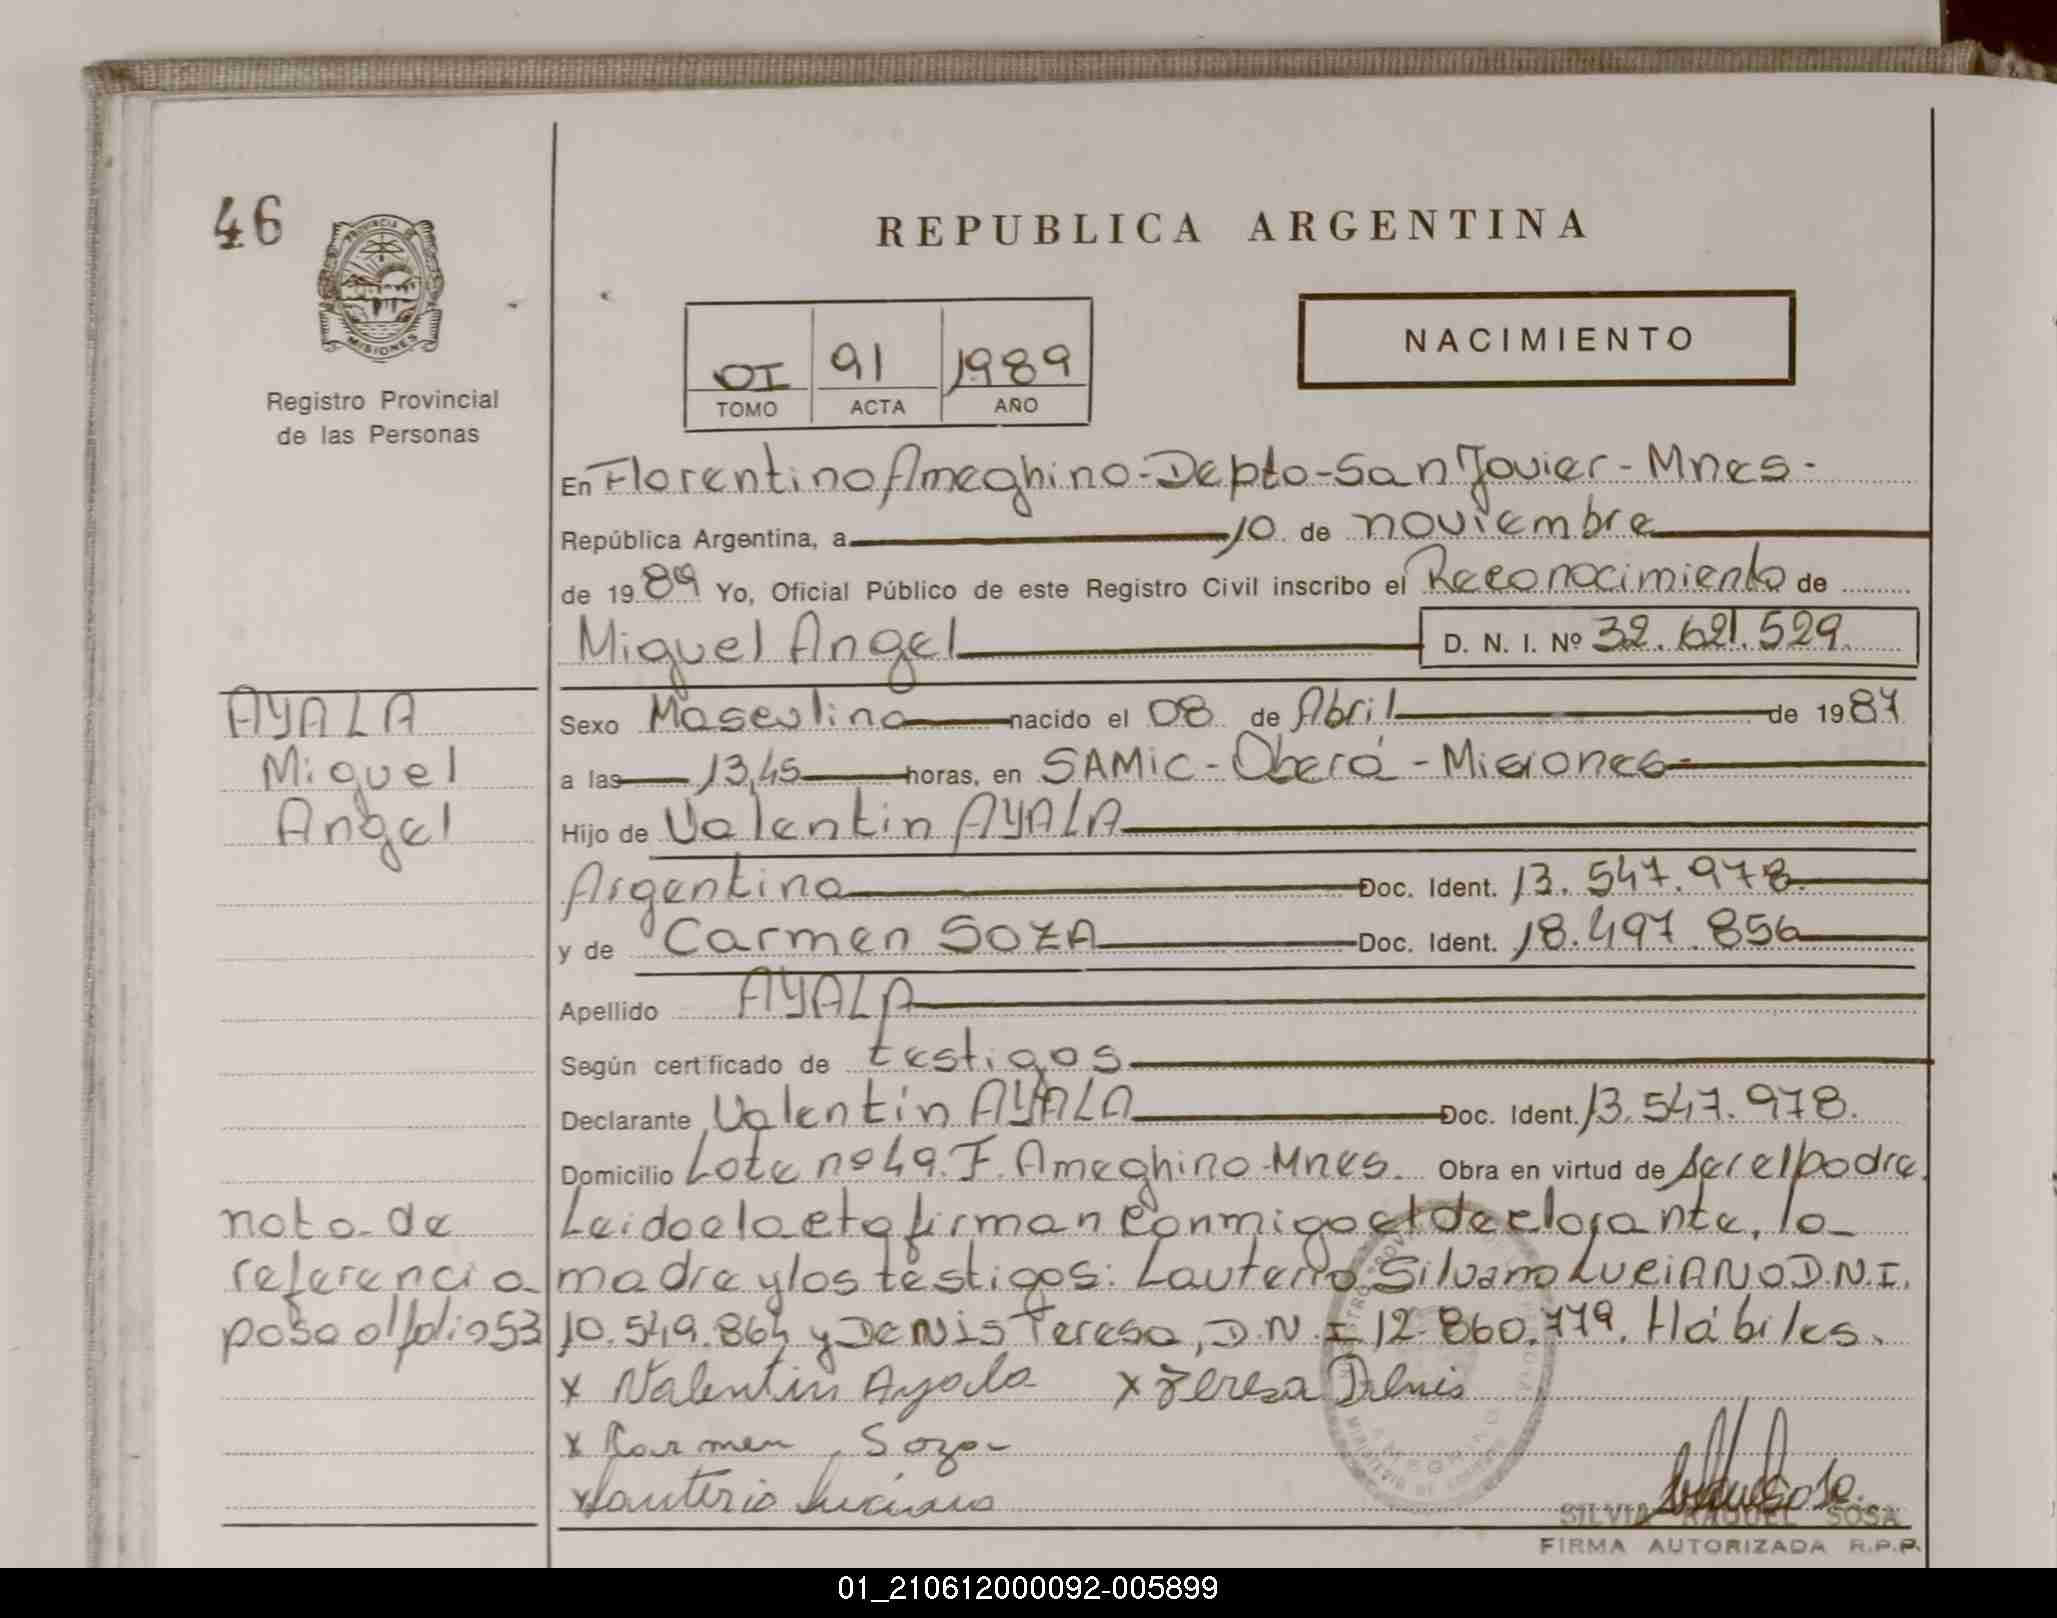 46
PROVINCIA DE
MISIONES
Registro Provincial
de las Personas
REPUBLICA ARGENTINA
OI 91 1989
TOMO ACTA AÑO
NACIMIENTO
En Florentino Ameghino-Depto-San Javier-Mnes-
República Argentina, a 10 de noviembre
de 1989 Yo, Oficial Público de este Registro Civil inscribo el Reconocimiento de
Miguel Angel D. N. I. Nº 32.621.529.
AYALA
Miguel
Angel
Sexo Masculino nacido el 08 de Abril de 1987
a las 13,45 horas, en SAMic-Oberá-Misiones-
Hijo de Valentin AYALA
Argentina Doc. Ident. 13.547.978.
y de Carmen SOZA Doc. Ident. 18.497.856
Apellido AYALA
Según certificado de testigos
Declarante Valentín AYALA Doc. Ident. 13.547.978.
Domicilio Lote nº 49. F. Ameghino-Mnes. Obra en virtud de ser el padre.
nota de
referencia
pasa al folio 53
Leido el acta firman conmigo el declarante, la
madre y los testigos: Lauterio Silvano LUCIANO D.N.I.
10.549.864 y DENIS Teresa, D.N.I 12.860.779. Hábiles.
x Valentin Ayala x Teresa Denis
x Carmen Soza
x Lauterio Luciano
SILVIA RAQUEL SOSA
FIRMA AUTORIZADA R.P.P.
01_210612000092-005899